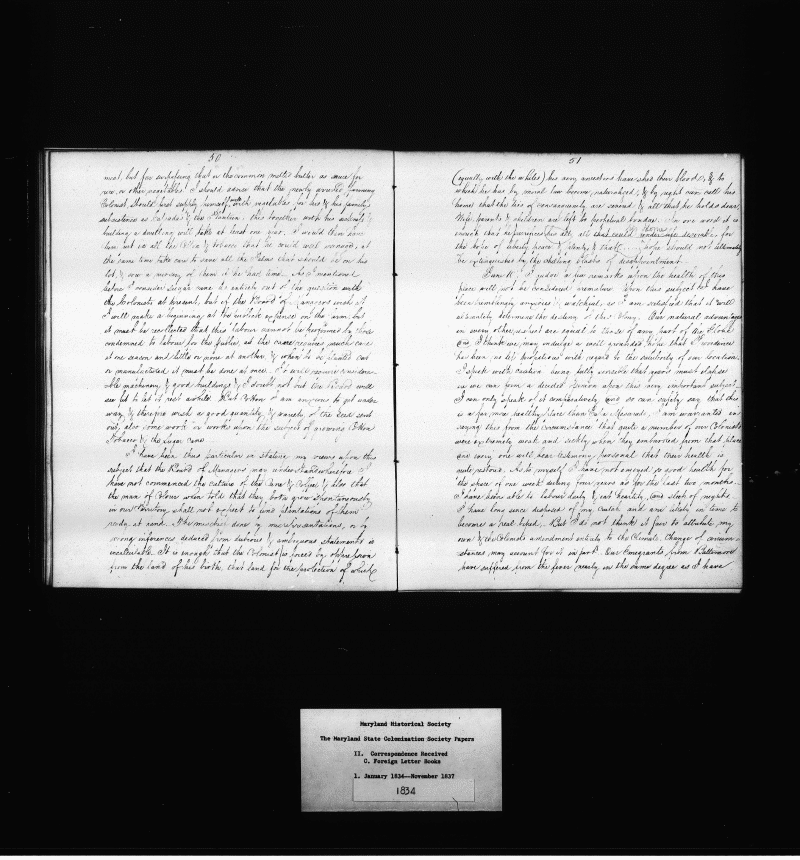 50
meat, but for supposing that or the common melted butter as sauce for
or other vegetables. I should advise that the newly arrived farming
Colonist should first supply himself with vegetables for his & his family's
subsistence as Potatoes & the Plantain. this together with his
building a dwelling will take at least one year. I would then
him put in all the Cotton & tobacco that he could well manage, at
the same time take care to save all the Palms that should be on his
lot, & sow a nursery of them if he had time. As I mentioned
before I consider Sugar cane as entirely out of the question with
the Colonists at present, but if the Board of Managers wish it
I will make a beginning at the public expense on the farm, but
it must be recollected that this labour cannot be performed by those
condemned to labour for the public, as the cane requires much care
at one season and little or none at another, & when to be planted out
or manufactured it must be done at once. It will require considera-
ble machinery, & good buildings & I doubt not but the Board will
see fit to let it rest awhile. But Cotton I am anxious to get under
way, & therefore wish a good quantity, & variety of the Seed sent
out, also some work or works upon the subject of growing Cotton
Tobacco & the Sugar Cane.
I have been thus particular in stating my views upon this
subject that the Board of Managers may understand wherefore I
have not commenced the culture of the Cane & Coffee, & also that
the man of Colour when told that they both grow spontaneously
in our Territory, shall not expect to find plantations of them
ready at hand. The mischief done by misrepresentations, or by
wrong inferences deduced from dubious & ambiguous statements is
incalculable. It is enough that the Colonist is forced by oppression
from the land of his birth, that land for the protection of which
51
(equally with the whites) his very ancestors have shed their blood, & to
which he has by moral law become naturalized, & by right can call his
home, that the ties of consanguinity are severed, & all that he holds dear,
Wife, parents & children are left to perpetual bondage. In one word it is
enough that he sacrifices his all, all that could under
the hope of liberty peace & plenty & that hope should not ultimately
be extinguished by the chilling blasts of disappointment.
I judge a few remarks upon the health of this
place will not be considered premature. Upon this subject I have
been exceedingly anxious & watchful, as I am satisfied that it will
ultimately determine the destiny of this Colony. Our natural advantages
in every other respect are equal to those of any part of the Globe
and I think we may indulge a well grounded hope that Providence
has been no less propitious with regard to the salubrity of our location.
I speak with caution being fully sensible that years must elapse
ere we can form a decided opinion upon this very important subject.
I can only speak of it comparatively, and so can safely say that this
is a far more healthy place than Monrovia, I am warranted in
saying this from the circumstance that quite a number of our Colonists
were extremely weak and sickly when they embarked from that place
and every one will bear testimony personal that their health is
quite restored. As to myself I have not enjoyed so good health for
the space of one week during four years as for the last two months.
I have been able to labour daily, & eat heartily, and sleep o' nights
I have long since disposed of my crutch and am likely in time to
become a real biped. But I do not think it fair to attribute my
own & the Colonists amendment entirely to the Climate. Change of circum-
stances may account for it in part. Our Emigrants from Baltimore
have suffered from the fever nearly in the same degree as I have
Maryland Historical Society
The Maryland State Colonization Society Papers
II. Correspondence Received
C. Foreign Letter Books
1. January 1834--November 1837
1834